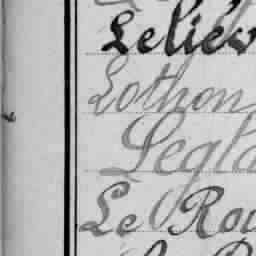 Leliév
Lothon
Legla
Le Rou